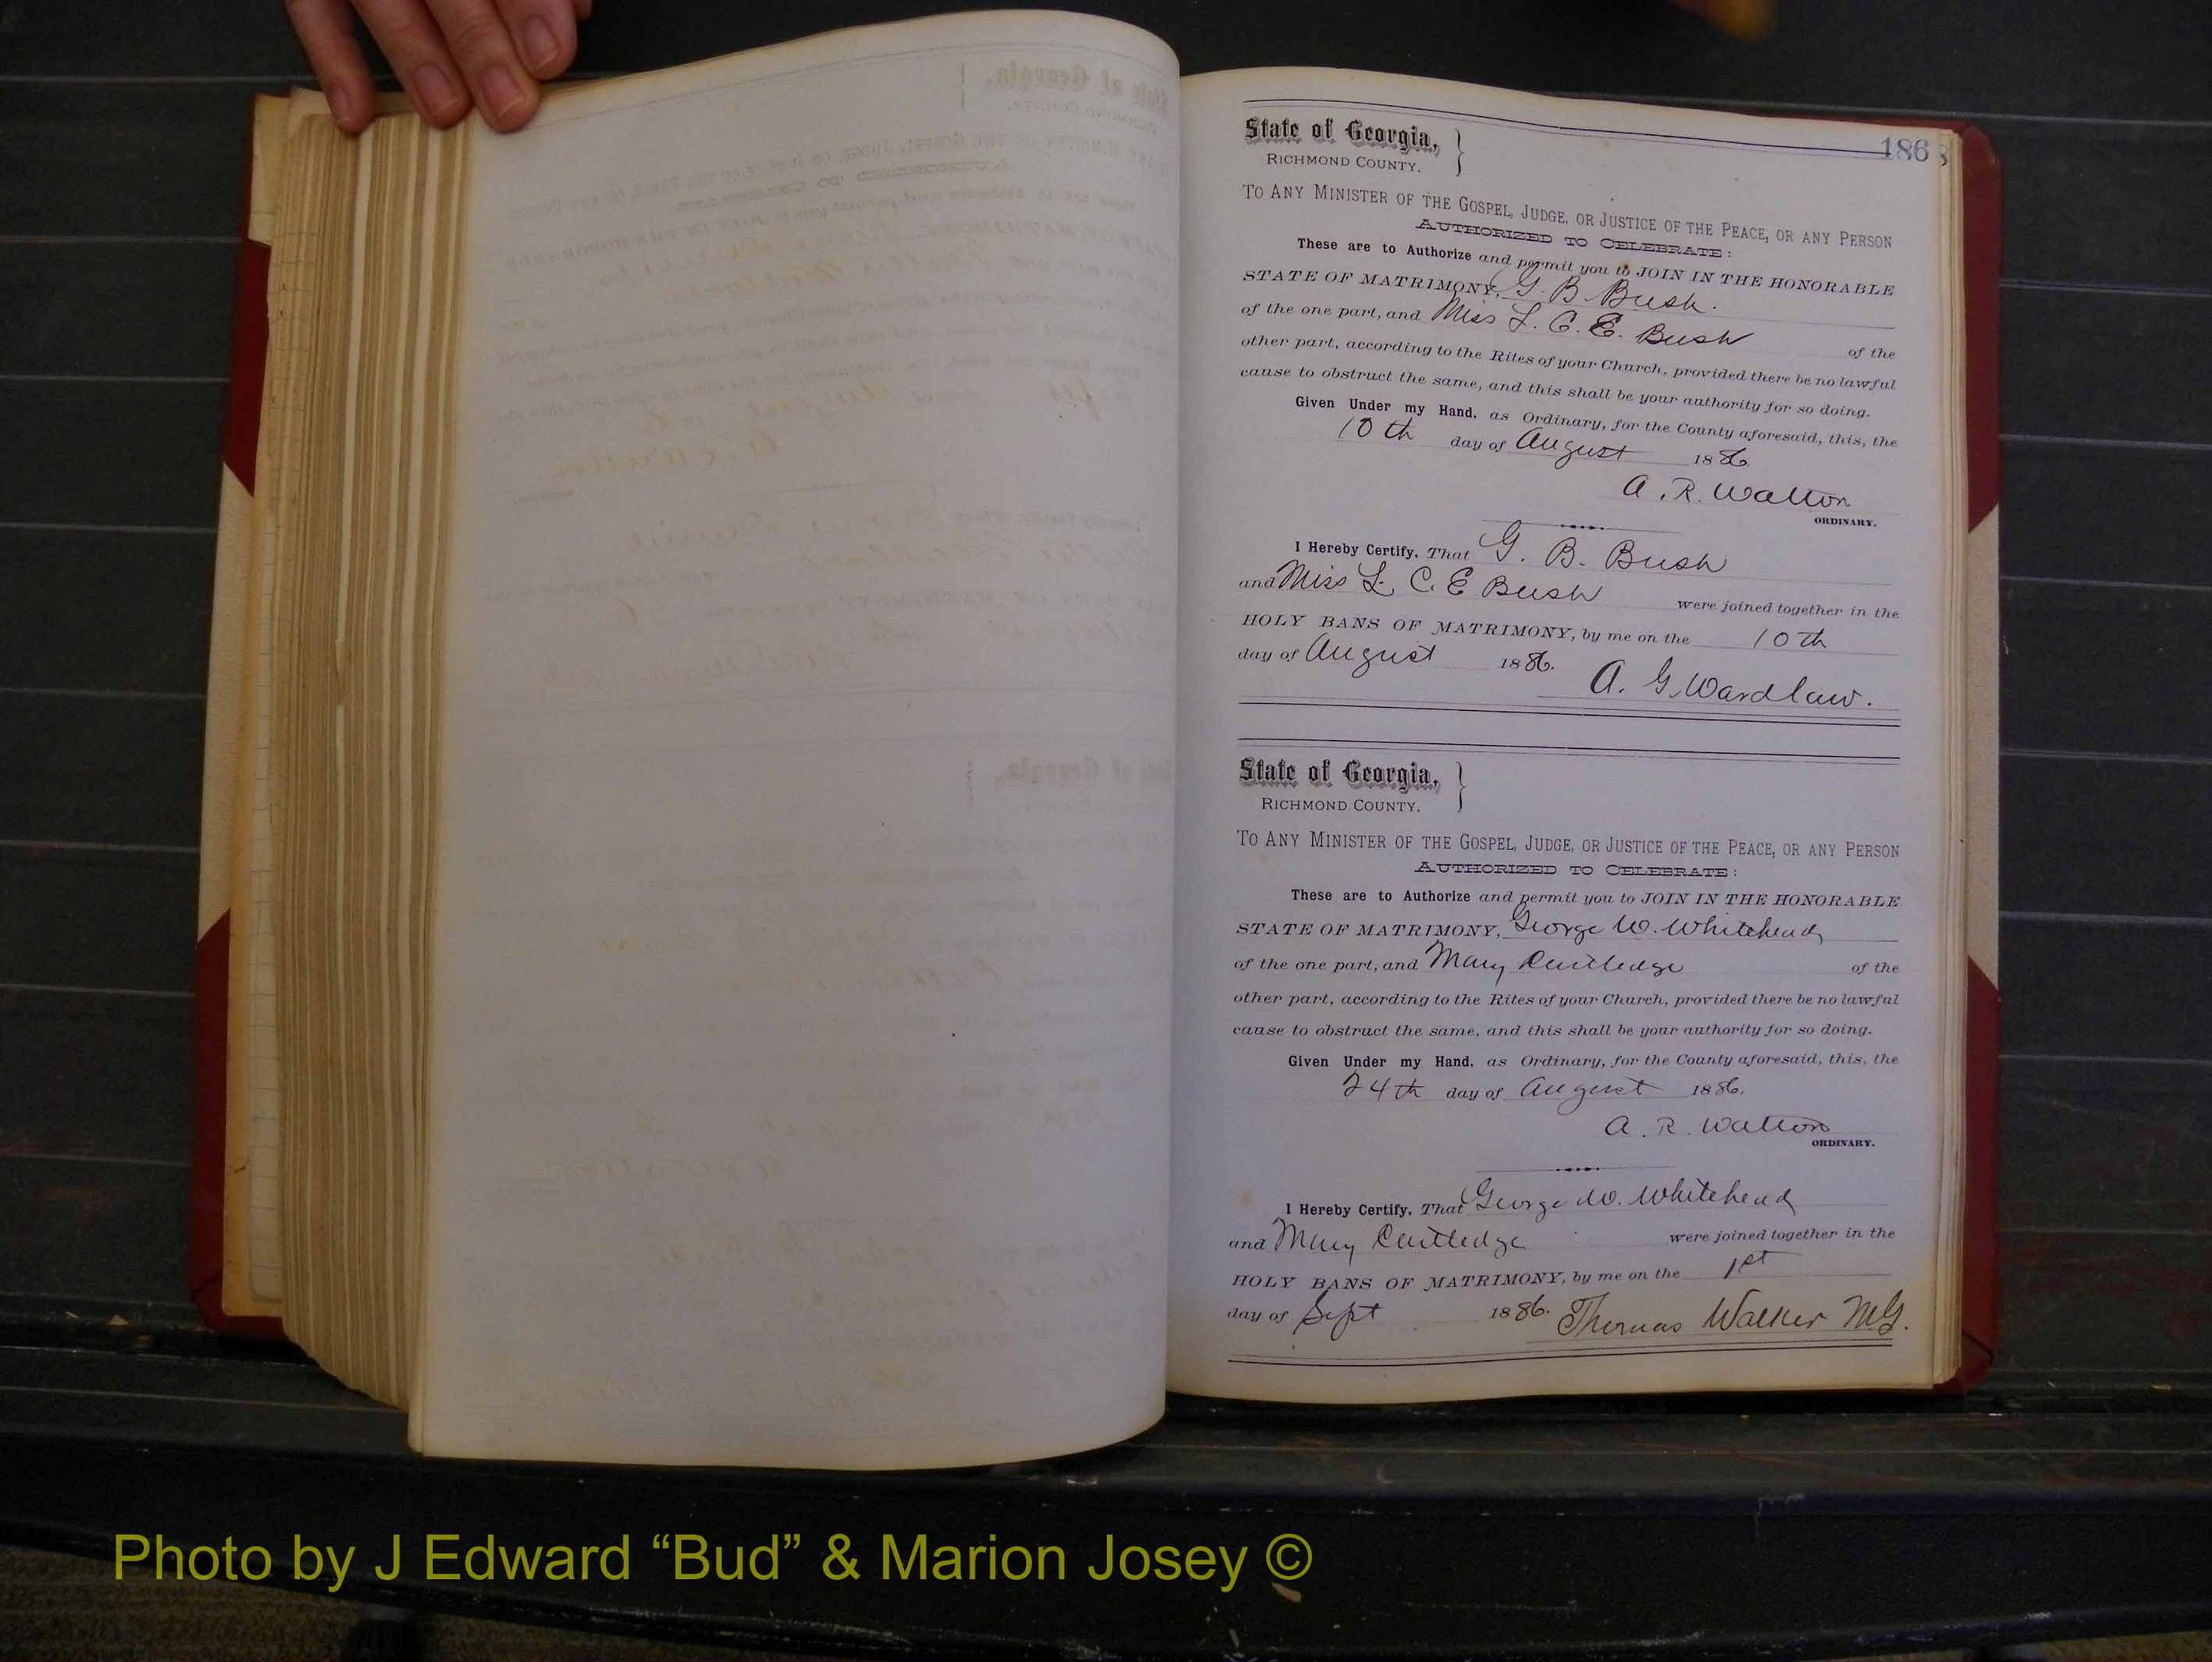 186
State of Georgia,
RICHMOND COUNTY.
TO ANY MINISTER OF THE GOSPEL, JUDGE, OR JUSTICE OF THE PEACE, OR ANY PERSON
AUTHORIZED TO CELEBRATE:
These are to Authorize and permit you to JOIN IN THE HONORABLE
STATE OF MATRIMONY, G. B. Bush.
of the one part, and Miss L. C. E. Bush of the
other part, according to the Rites of your Church, provided there be no lawful
cause to obstruct the same, and this shall be your authority for so doing.
Given Under my Hand, as Ordinary, for the County aforesaid, this, the
10th day of August 1886.
A. R. Walton
ORDINARY.
I Hereby Certify, That G. B. Bush
and Miss L. C. E Bush were joined together in the
HOLY BANS OF MATRIMONY, by me on the 10th
day of August 1886.
A. G. Wardlaw.
State of Georgia,
RICHMOND COUNTY.
TO ANY MINISTER OF THE GOSPEL, JUDGE, OR JUSTICE OF THE PEACE, OR ANY PERSON
AUTHORIZED TO CELEBRATE:
These are to Authorize and permit you to JOIN IN THE HONORABLE
STATE OF MATRIMONY, George W. Whitehead
of the one part, and Mary of the
other part, according to the Rites of your Church, provided there be no lawful
cause to obstruct the same, and this shall be your authority for so doing.
Given Under my Hand, as Ordinary, for the County aforesaid, this, the
24th day of August 1886.
A. R. Walton
ORDINARY.
I Hereby Certify, That George W. Whitehead
and Mary were joined together in the
HOLY BANS OF MATRIMONY, by me on the 1st
day of Sept 1886. Thomas Walker M.G.
Photo by J Edward “Bud” & Marion Josey ©